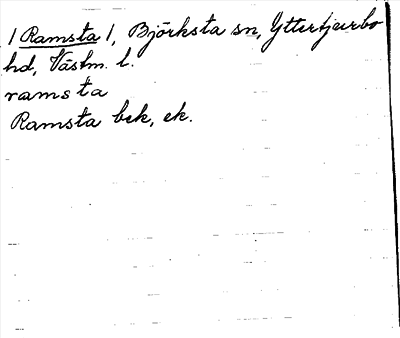 / Ramsta /, Björksta sn, Yttertjurbo
hd, Västm. l.
ramsta
Ramsta bek, ek.